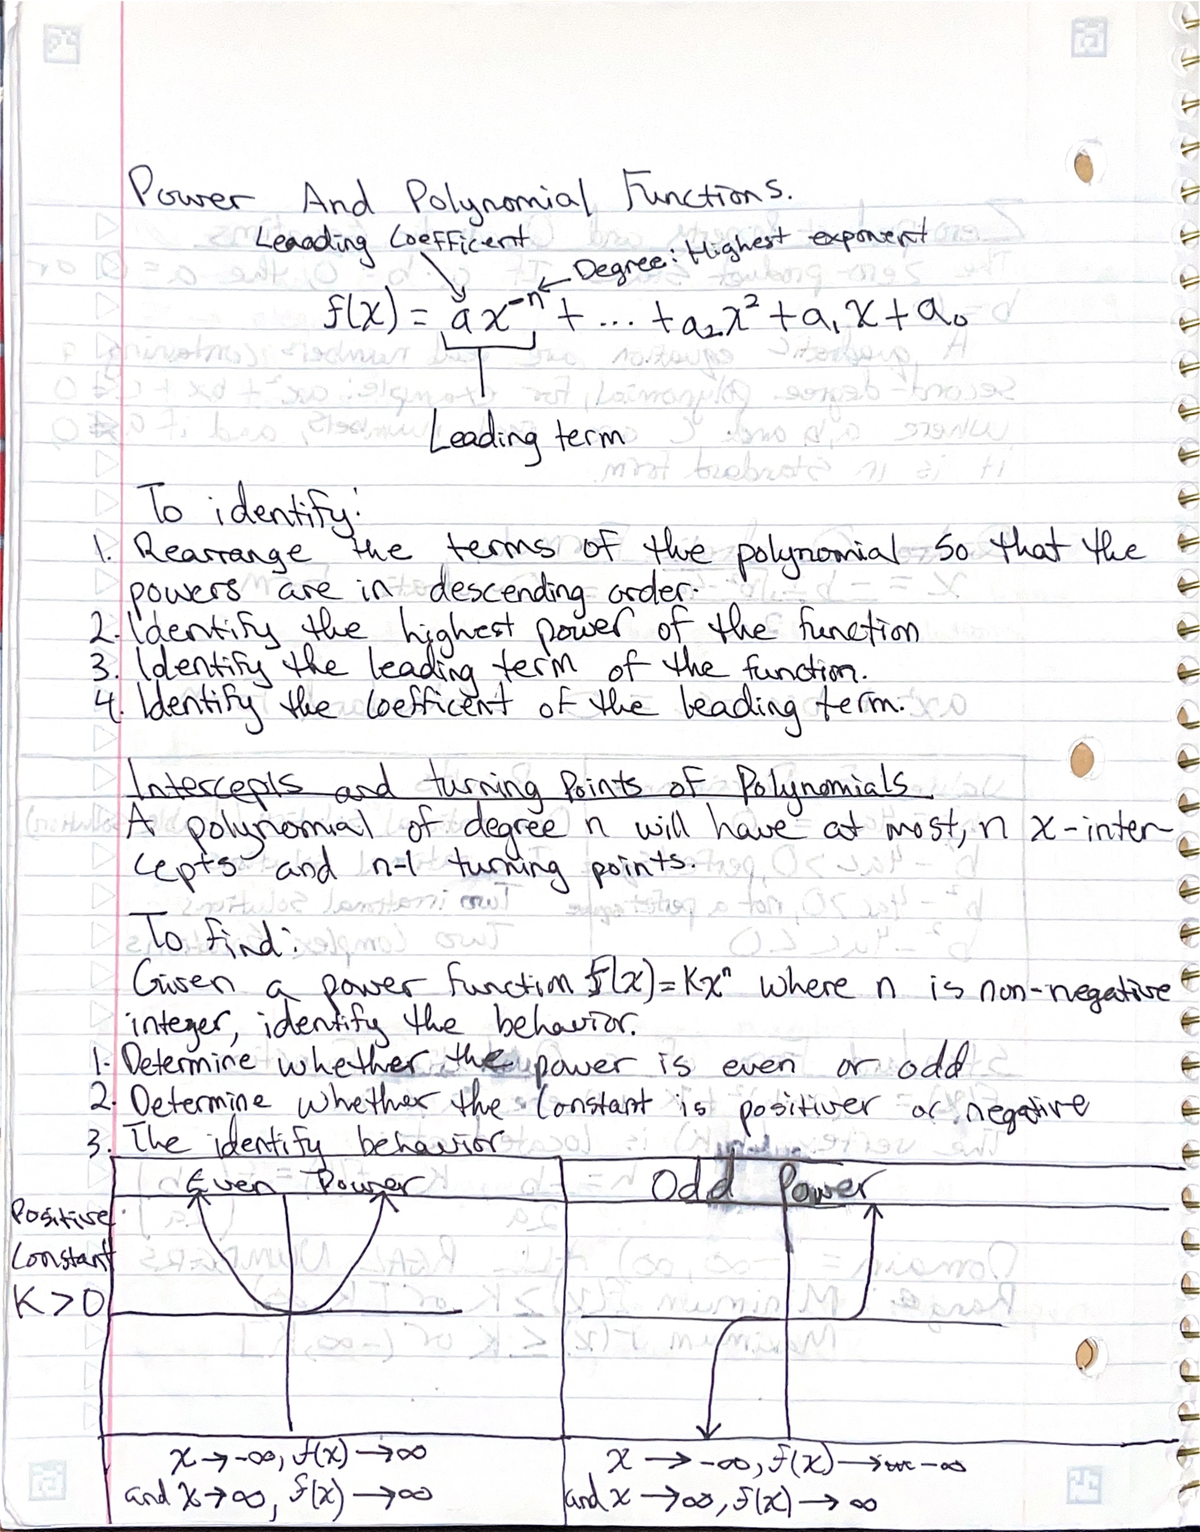 Power And Polynomial Functions.
Leaading Coefficent
Degree: Highest exponent
f(x) = ax⁻ⁿ + ... + a₂x² + a₁x + a₀
Leading term
To identify:
1. Rearrange the terms of the polynomial so that the
powers are in descending order.
2. Identify the highest power of the function
3. Identify the leading term of the function.
4. Identify the Coefficent of the leading term.
Intercepts and turning Points of Polynomials
A polynomial of degree n will have at most, n x-inter-
cepts and n-1 turning points.
To find:
Given a power function f(x)=Kxⁿ where n is non-negative
integer, identify the behavior.
1. Determine whether the power is even or odd
2. Determine whether the Constant is positiver or negative
3. The identify behavior
Even Power
Odd Power
Positive
Constant
K > 0
x → -∞, f(x) → ∞
and x → ∞, f(x) → ∞
x → -∞, f(x) → -∞
and x → ∞, f(x) → ∞